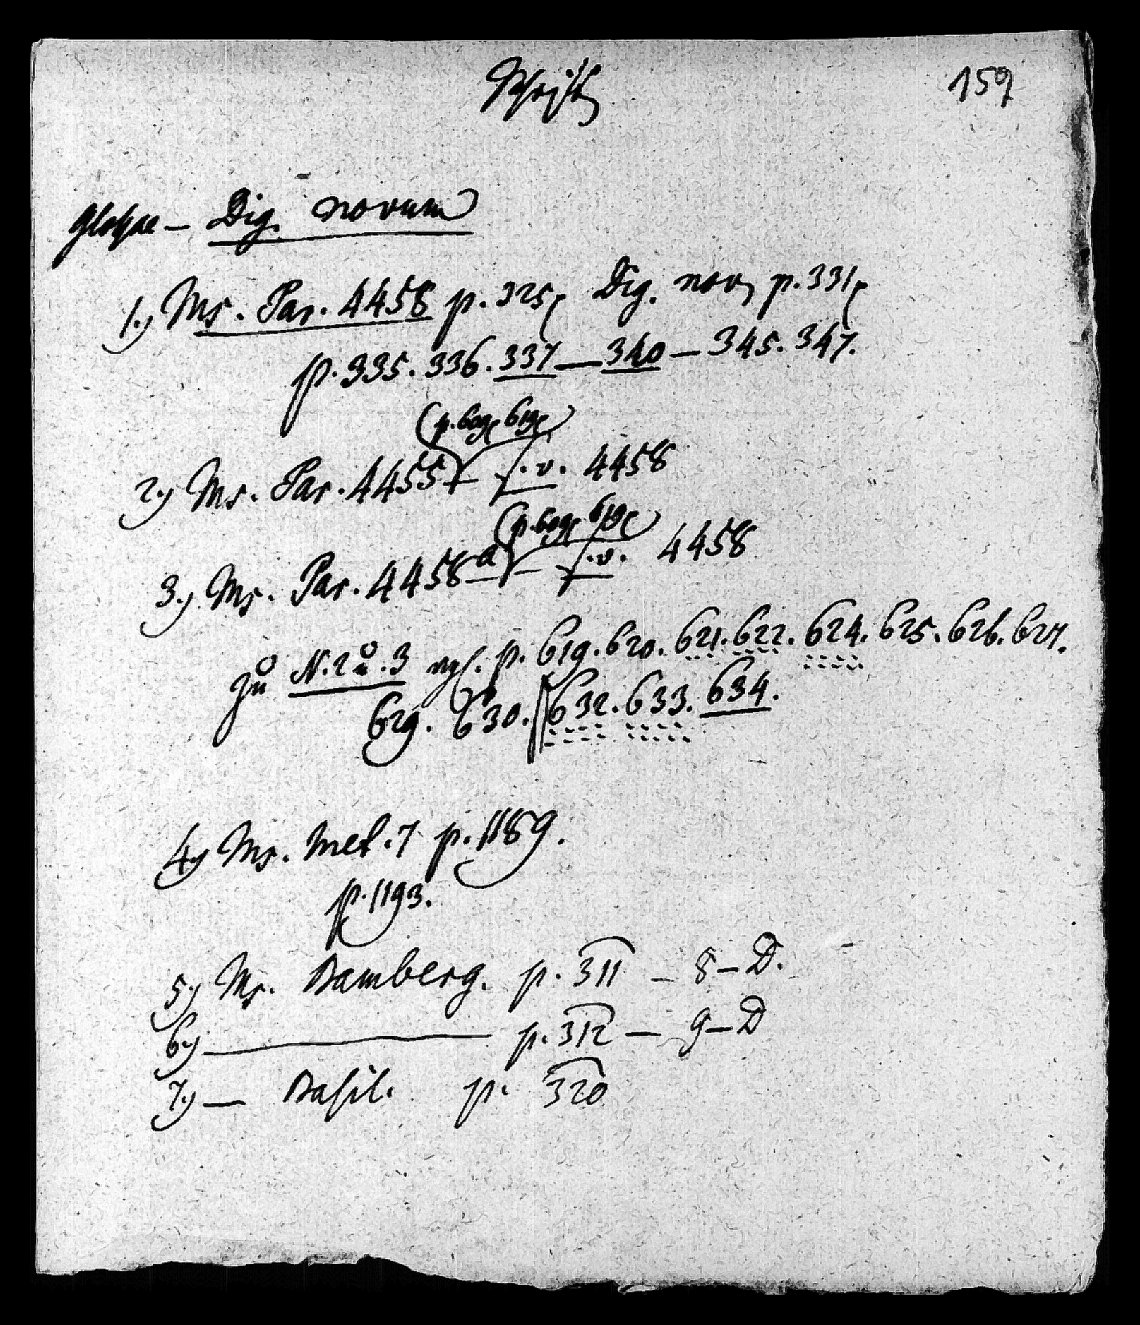 Schrift
159
Glossae – Dig. novum
1.) Ms. Par. 4458 p. 325, Dig. nov, p. 331,
p. 335. 336. 337 — 340 – 345. 347.
(p. 609. 619)
2.) Ms. Par. 4455 – s. v. 4458
(p. 609. 619)
3.) Ms. Par. 4458a – s. v. 4458
zu N. 2 u. 3 vgl. p. 619. 620. 621. 622. 624. 625. 626. 627.
629. 630. 632. 633. 634.
4.) Ms. Met. 7 p. 1189.
p. 1193.
5.) Ms. Bamberg. p. 311 – 8–D.
6.) —— p. 312 – 9–D
7.) — Basil. p. 320